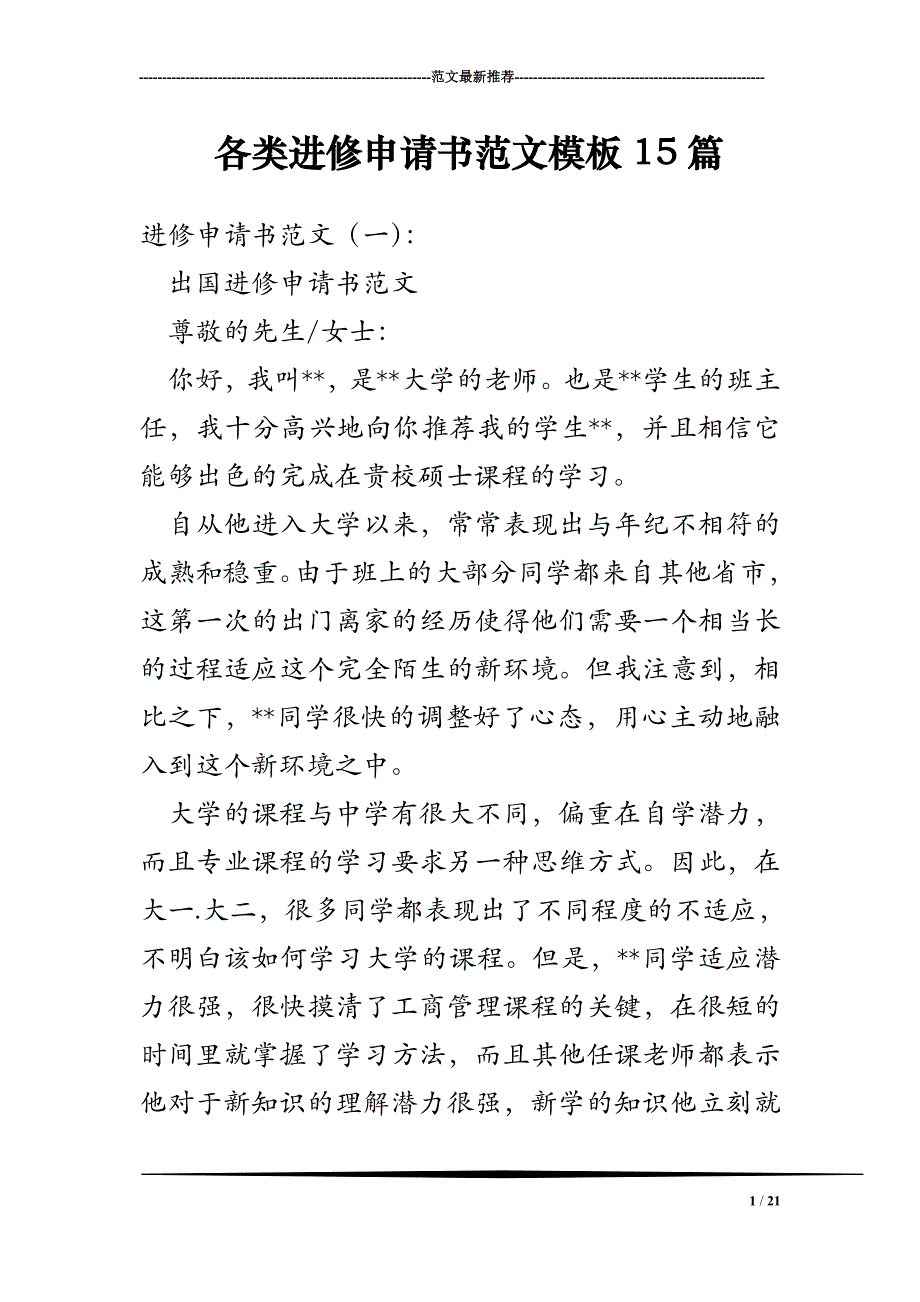 ---------------------------------------------------------------范文最新推荐------------------------------------------------------
各类进修申请书范文模板 15 篇
进修申请书范文（一）：
出国进修申请书范文
尊敬的先生/女士：
你好，我叫**，是**大学的老师。也是**学生的班主
任，我十分高兴地向你推荐我的学生**，并且相信它
能够出色的完成在贵校硕士课程的学习。
自从他进入大学以来，常常表现出与年纪不相符的
成熟和稳重。由于班上的大部分同学都来自其他省市，
这第一次的出门离家的经历使得他们需要一个相当长
的过程适应这个完全陌生的新环境。但我注意到，相
比之下，**同学很快的调整好了心态，用心主动地融
入到这个新环境之中。
大学的课程与中学有很大不同，偏重在自学潜力，
而且专业课程的学习要求另一种思维方式。因此，在
大一.大二，很多同学都表现出了不同程度的不适应，
不明白该如何学习大学的课程。但是，**同学适应潜
力很强，很快摸清了工商管理课程的关键，在很短的
时间里就掌握了学习方法，而且其他任课老师都表示
他对于新知识的理解潜力很强，新学的知识他立刻就
1 / 21